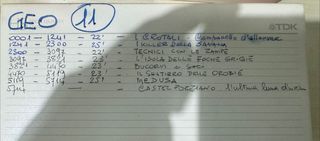 GEO 11
TDK
0001 - 1241 - 22' - I CROTALI - Campanello d'allarme
1241 - 2300 - 25' - I KILLER DELLA SAVANA
2300 - 3097 - 22' - TECNICI CON LE ZAMPE
3097 - 3821 - 23' - L'ISOLA DELLE FOCHE GRIGIE
3821 - 4470 - 22' - BUCORVI e SOCI
4470 - 5119 - 23' - IL SENTIERO DELLE OROBIE
5119 - 5714 - 25' - MEDUSA
5714 - CASTEL PORZIANO - l'ultima luna di